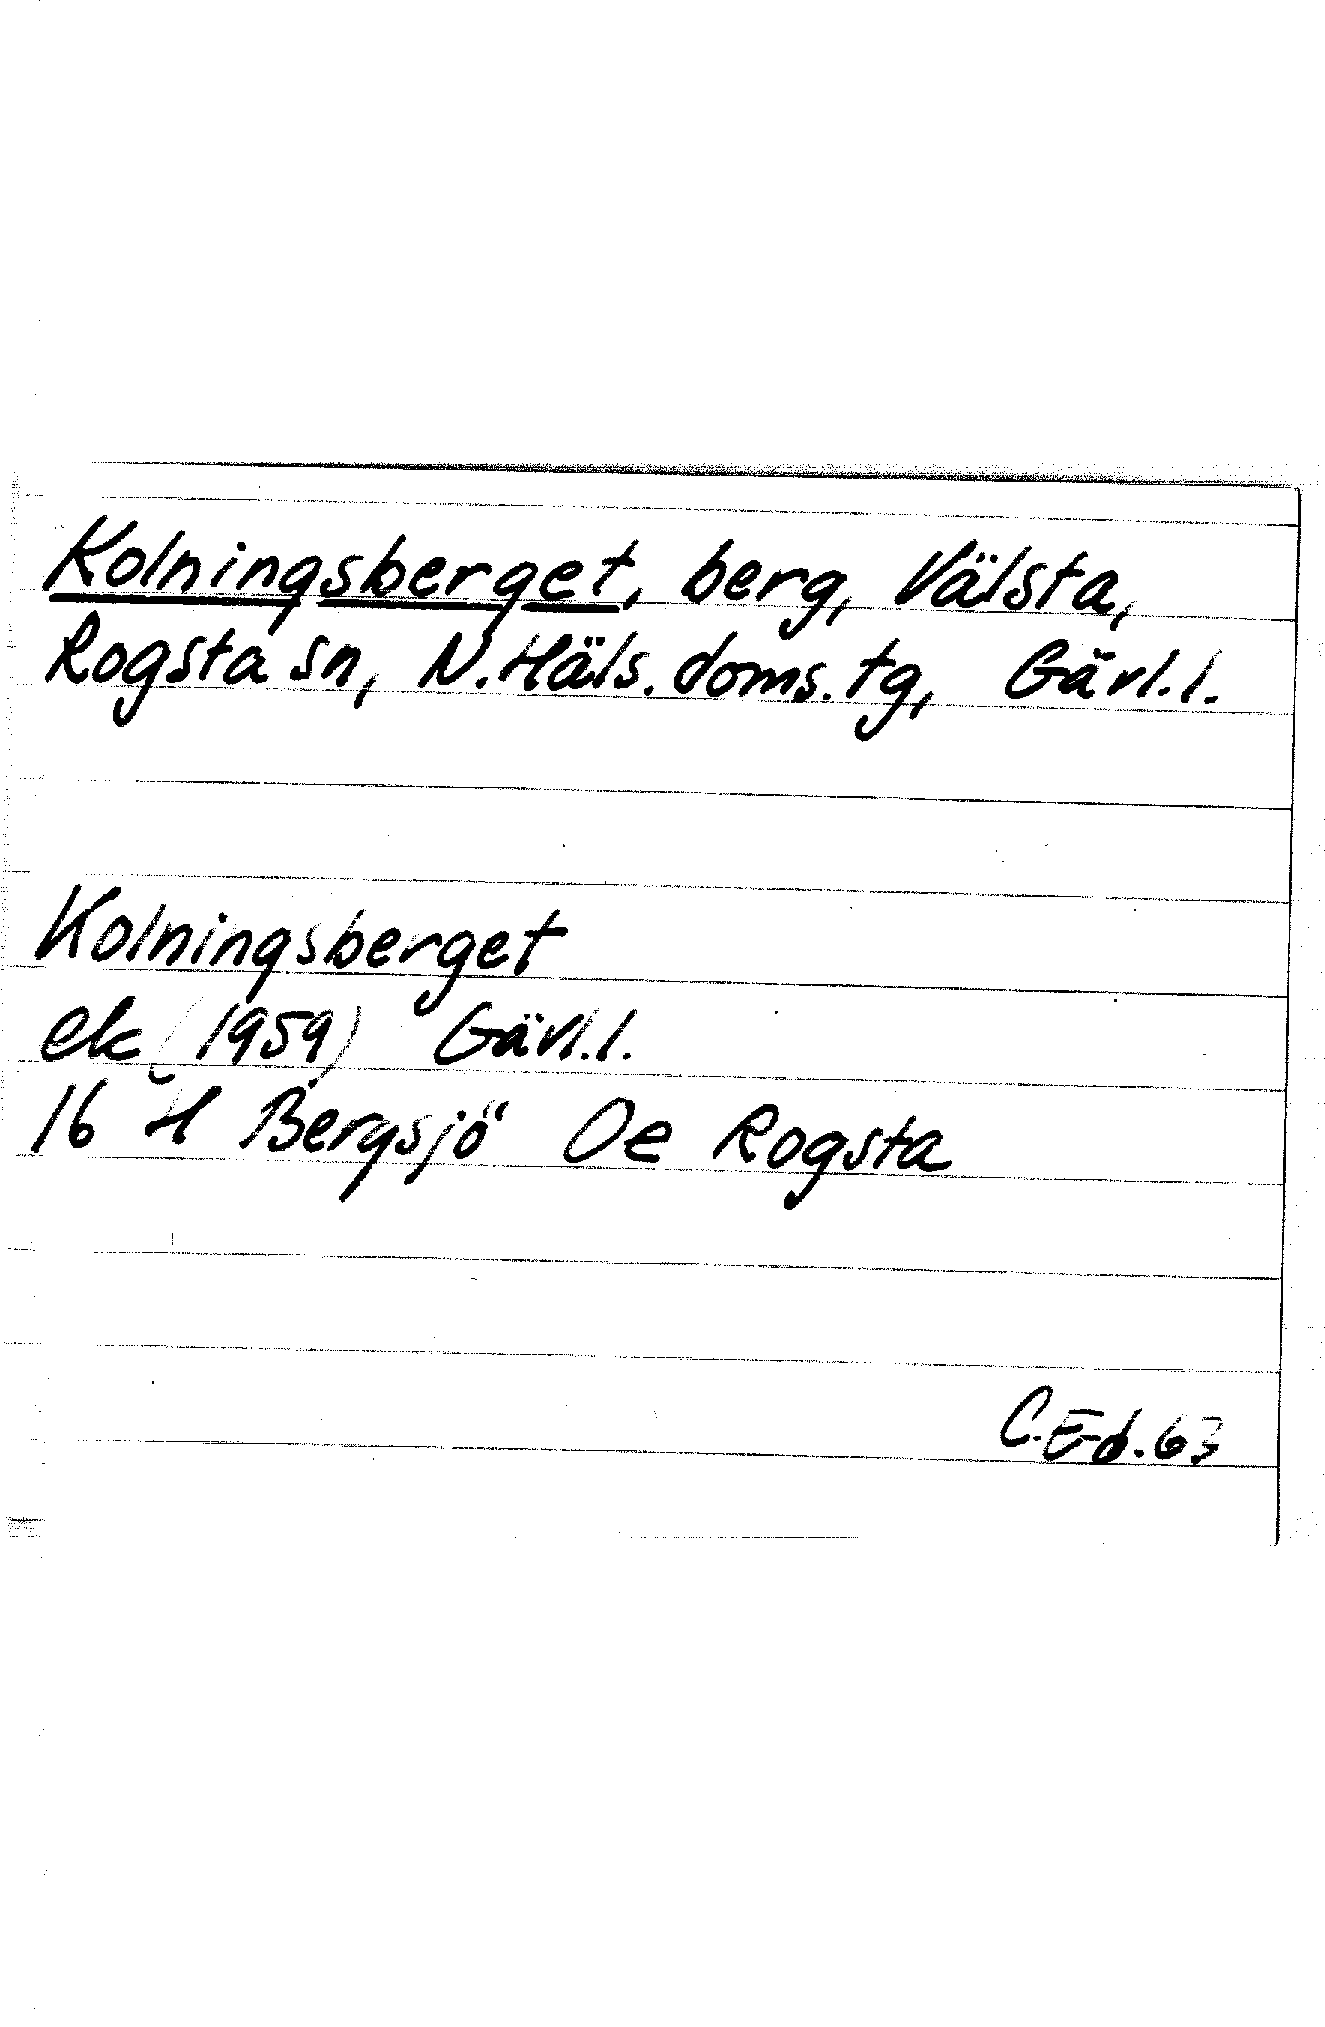 Kolningsberget, berg, Välsta,
Rogsta sn, N. Häls. doms. tg, Gävl. l.
Kolningsberget
ek (1959) Gävl. l.
16 H Bergsjö Oe Rogsta
C. E-d. 63